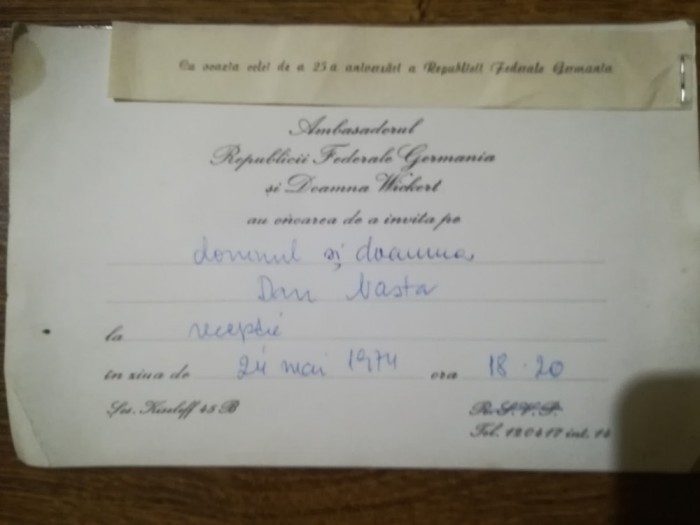 Cu ocazia celei de a 25 a aniversări a Republicii Federale Germania
Ambasadorul
Republicii Federale Germania
și Doamna Wickert
au onoarea de a invita pe
domnul și doamna
Dan Nasta
la recepție
în ziua de 24 mai 1974 ora 18-20
Șos. Kiseleff 45 B
R. S. V. P.
Tel. 120417 int. 14